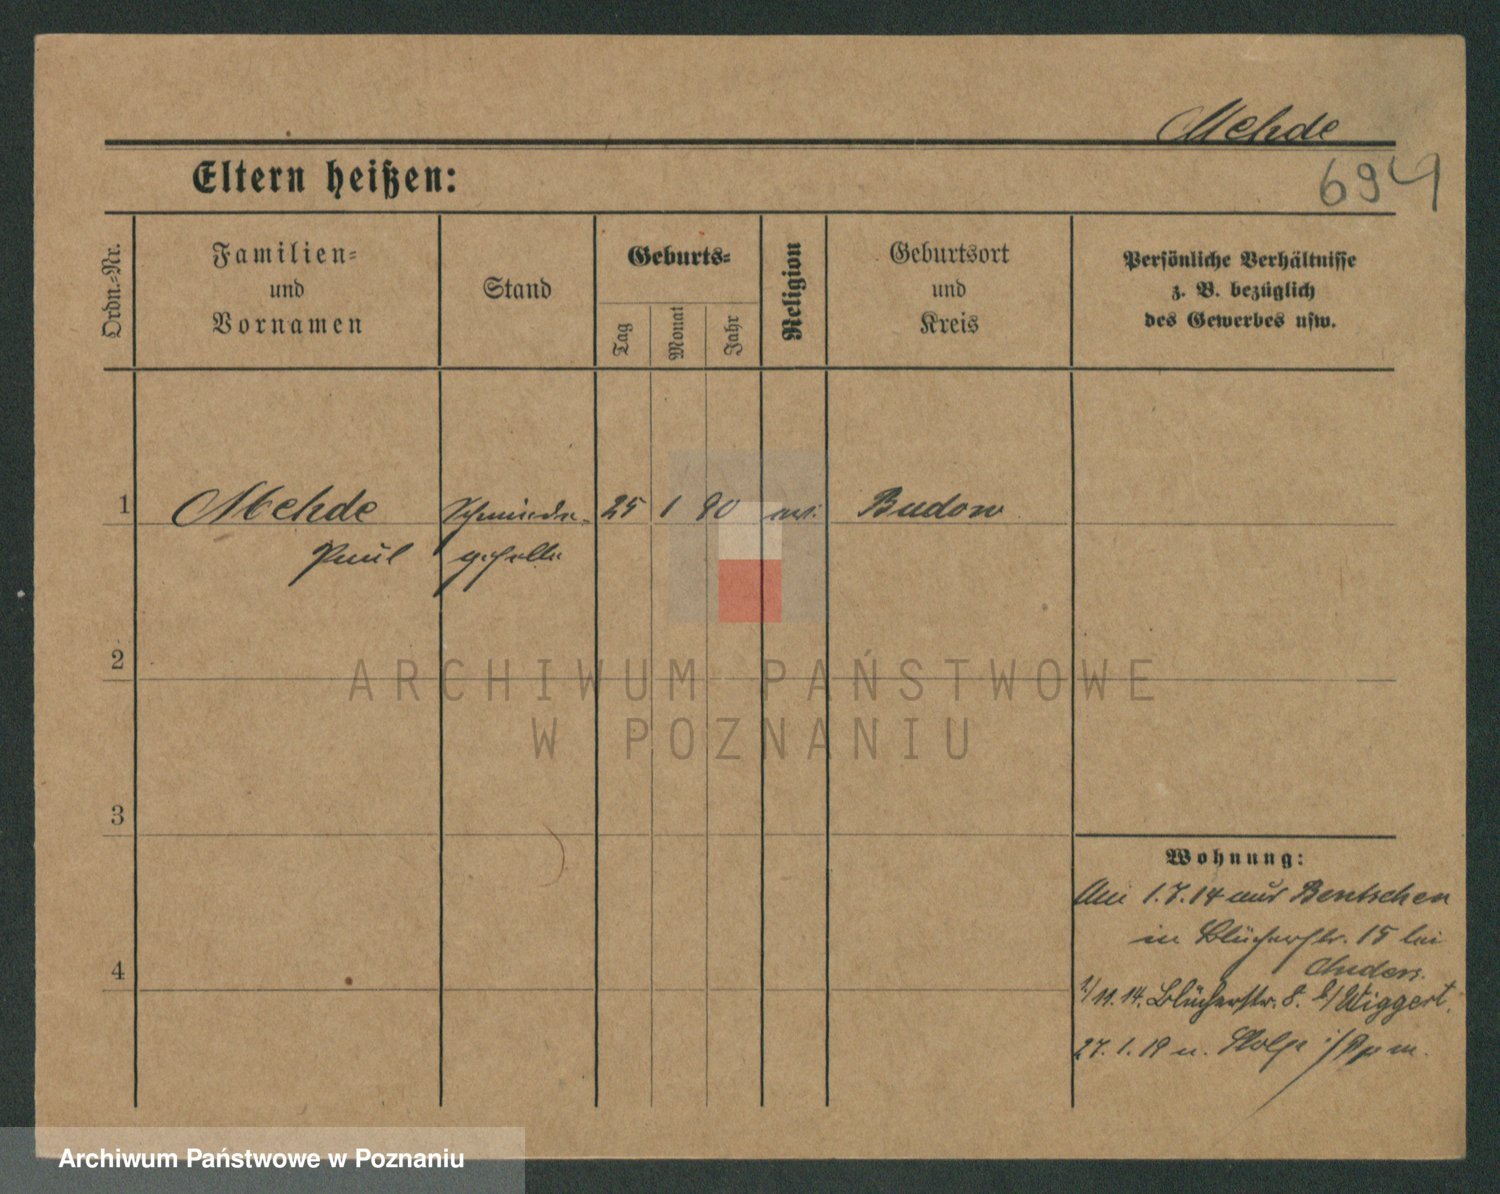 Mehde
Eltern heißen:
694
Ordn.-Nr.
Familien-
und
Vornamen
Stand
Geburts-
Tag
Monat
Jahr
Religion
Geburtsort
und
Kreis
Persönliche Verhältnisse
z. B. bezüglich
des Gewerbes usw.
1
Mehde
Schmiede-
25
1
90
ev.
Budow
Paul
geselle
2
3
4
Wohnung:
Am 1.7.14 aus Bentschen
in Blücherstr. 15 bei
Anders.
1/11.14. Blücherstr. 8. b/Wiggert.
27.1.19 n. Stolp i/Pom.
ARCHIWUM PAŃSTWOWE
W POZNANIU
Archiwum Państwowe w Poznaniu